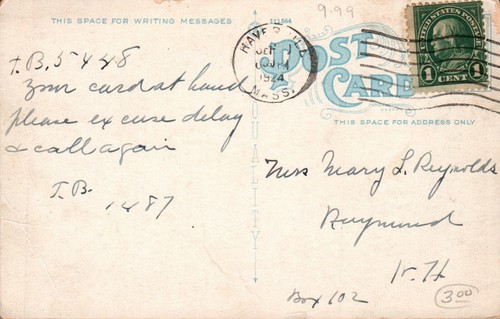 THIS SPACE FOR WRITING MESSAGES
111564
9.99
T.B. 5428
Your card at hand
please excuse delay
& call again
T.B.
1487
HAVERHILL
1924
MASS.
POST
CARD
UNITED STATES POSTAGE
1 CENT 1
THIS SPACE FOR ADDRESS ONLY
Miss Mary L. Reynolds
Raymond
N. H
Box 102
3.00